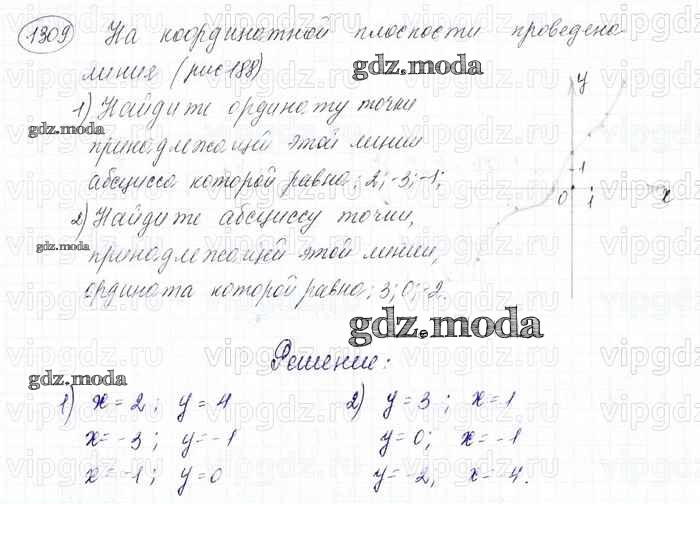 1309 На координатной плоскости проведена
линия (рис 188)
1) Найдите ординату точки
принадлежащей этой линии
абсцисса которой равна; 2; -3; -1;
2) Найдите абсциссу точки,
принадлежащей этой линии,
ордината которой равна; 3; 0; -2.
y
1
0 1 x
Решение:
1) x = 2; y = 4
x = -3; y = -1
x = -1; y = 0
2) y = 3; x = 1
y = 0; x = -1
y = -2, x = -4.
gdz.moda
gdz.moda
gdz.moda
gdz.moda
gdz.moda
vipgdz.ru